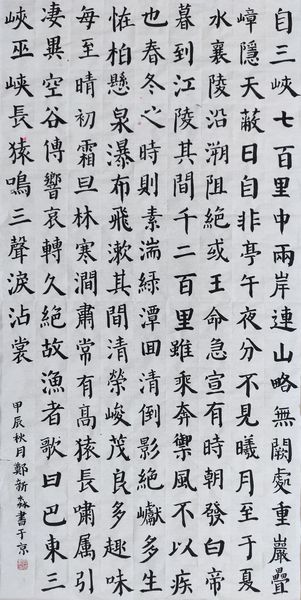 自三峽七百里中兩岸連山略無闕處重巖疊
嶂隱天蔽日自非亭午夜分不見曦月至于夏
水襄陵沿溯阻絕或王命急宣有時朝發白帝
暮到江陵其間千二百里雖乘奔禦風不以疾
也春冬之時則素湍綠潭回清倒影絕巘多生
恠柏懸泉瀑布飛漱其間清榮峻茂良多趣味
每至晴初霜旦林寒澗肅常有高猿長嘯属引
凄異空谷傳響哀轉久絕故漁者歌曰巴東三
峽巫峽長猿鳴三聲淚沾裳
甲辰秋月鄭新書于京